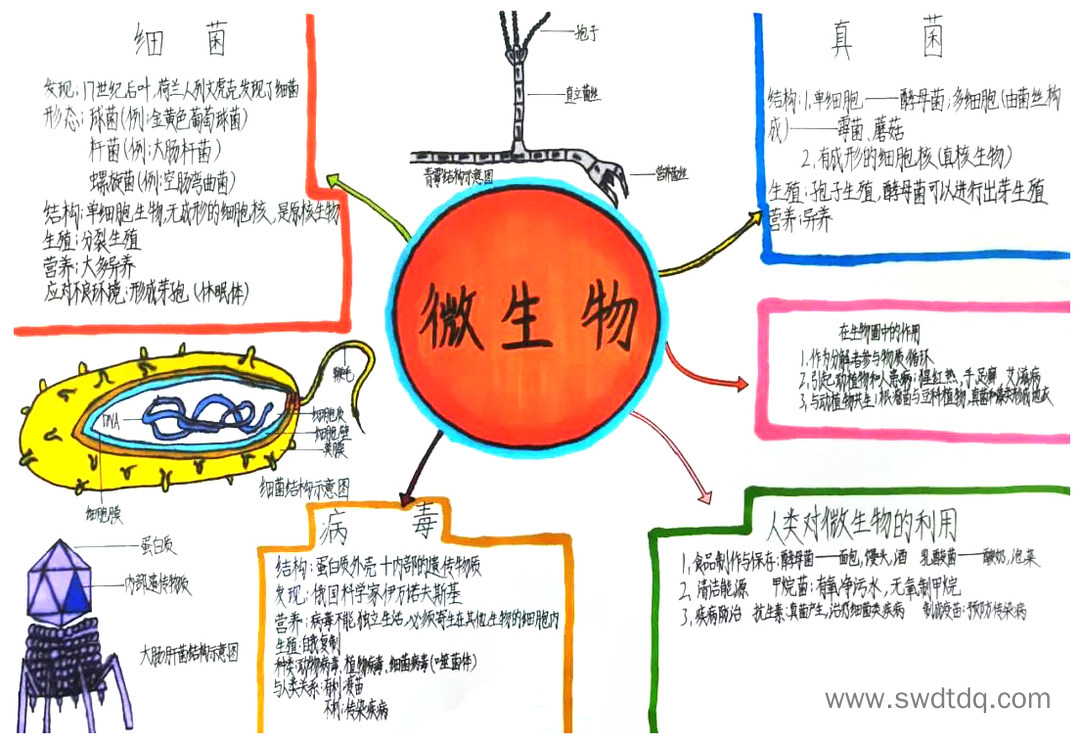 细菌
发现：17世纪后叶，荷兰人列文虎克发现了细菌
形态：球菌（例：金黄色葡萄球菌）
杆菌（例：大肠杆菌）
螺旋菌（例：空肠弯曲菌）
结构：单细胞生物，无成形的细胞核，是原核生物
生殖：分裂生殖
营养：大多异养
应对不良环境：形成芽孢（休眠体）
孢子
直立菌丝
营养菌丝
青霉结构示意图
真菌
结构：1，单细胞——酵母菌；多细胞（由菌丝构
成）——霉菌、蘑菇
2，有成形的细胞核（真核生物）
生殖：孢子生殖，酵母菌可以进行出芽生殖
营养：异养
微生物
在生物圈中的作用
1，作为分解者参与物质循环
2，引起动植物和人患病：猩红热，手足癣，艾滋病
3，与动植物共生：根瘤菌与豆科植物，真菌和藻类形成地衣
鞭毛
DNA
细胞质
细胞壁
荚膜
细胞膜
细菌结构示意图
蛋白质
内部遗传物质
大肠肝菌结构示意图
病毒
结构：蛋白质外壳+内部的遗传物质
发现：俄国科学家伊万诺夫斯基
营养：病毒不能独立生活，必须寄生在其他生物的细胞内
生殖：自我复制
种类：动物病毒、植物病毒、细菌病毒（噬菌体）
与人类关系：有利：疫苗
不利：传染疾病
人类对微生物的利用
1，食品制作与保存：酵母菌——面包，馒头，酒 乳酸菌——酸奶，泡菜
2，清洁能源 甲烷菌：有氧净污水，无氧制甲烷
3，疾病防治 抗生素：真菌产生，治疗细菌类疾病 制成疫苗：预防传染病
www.swdtdq.com